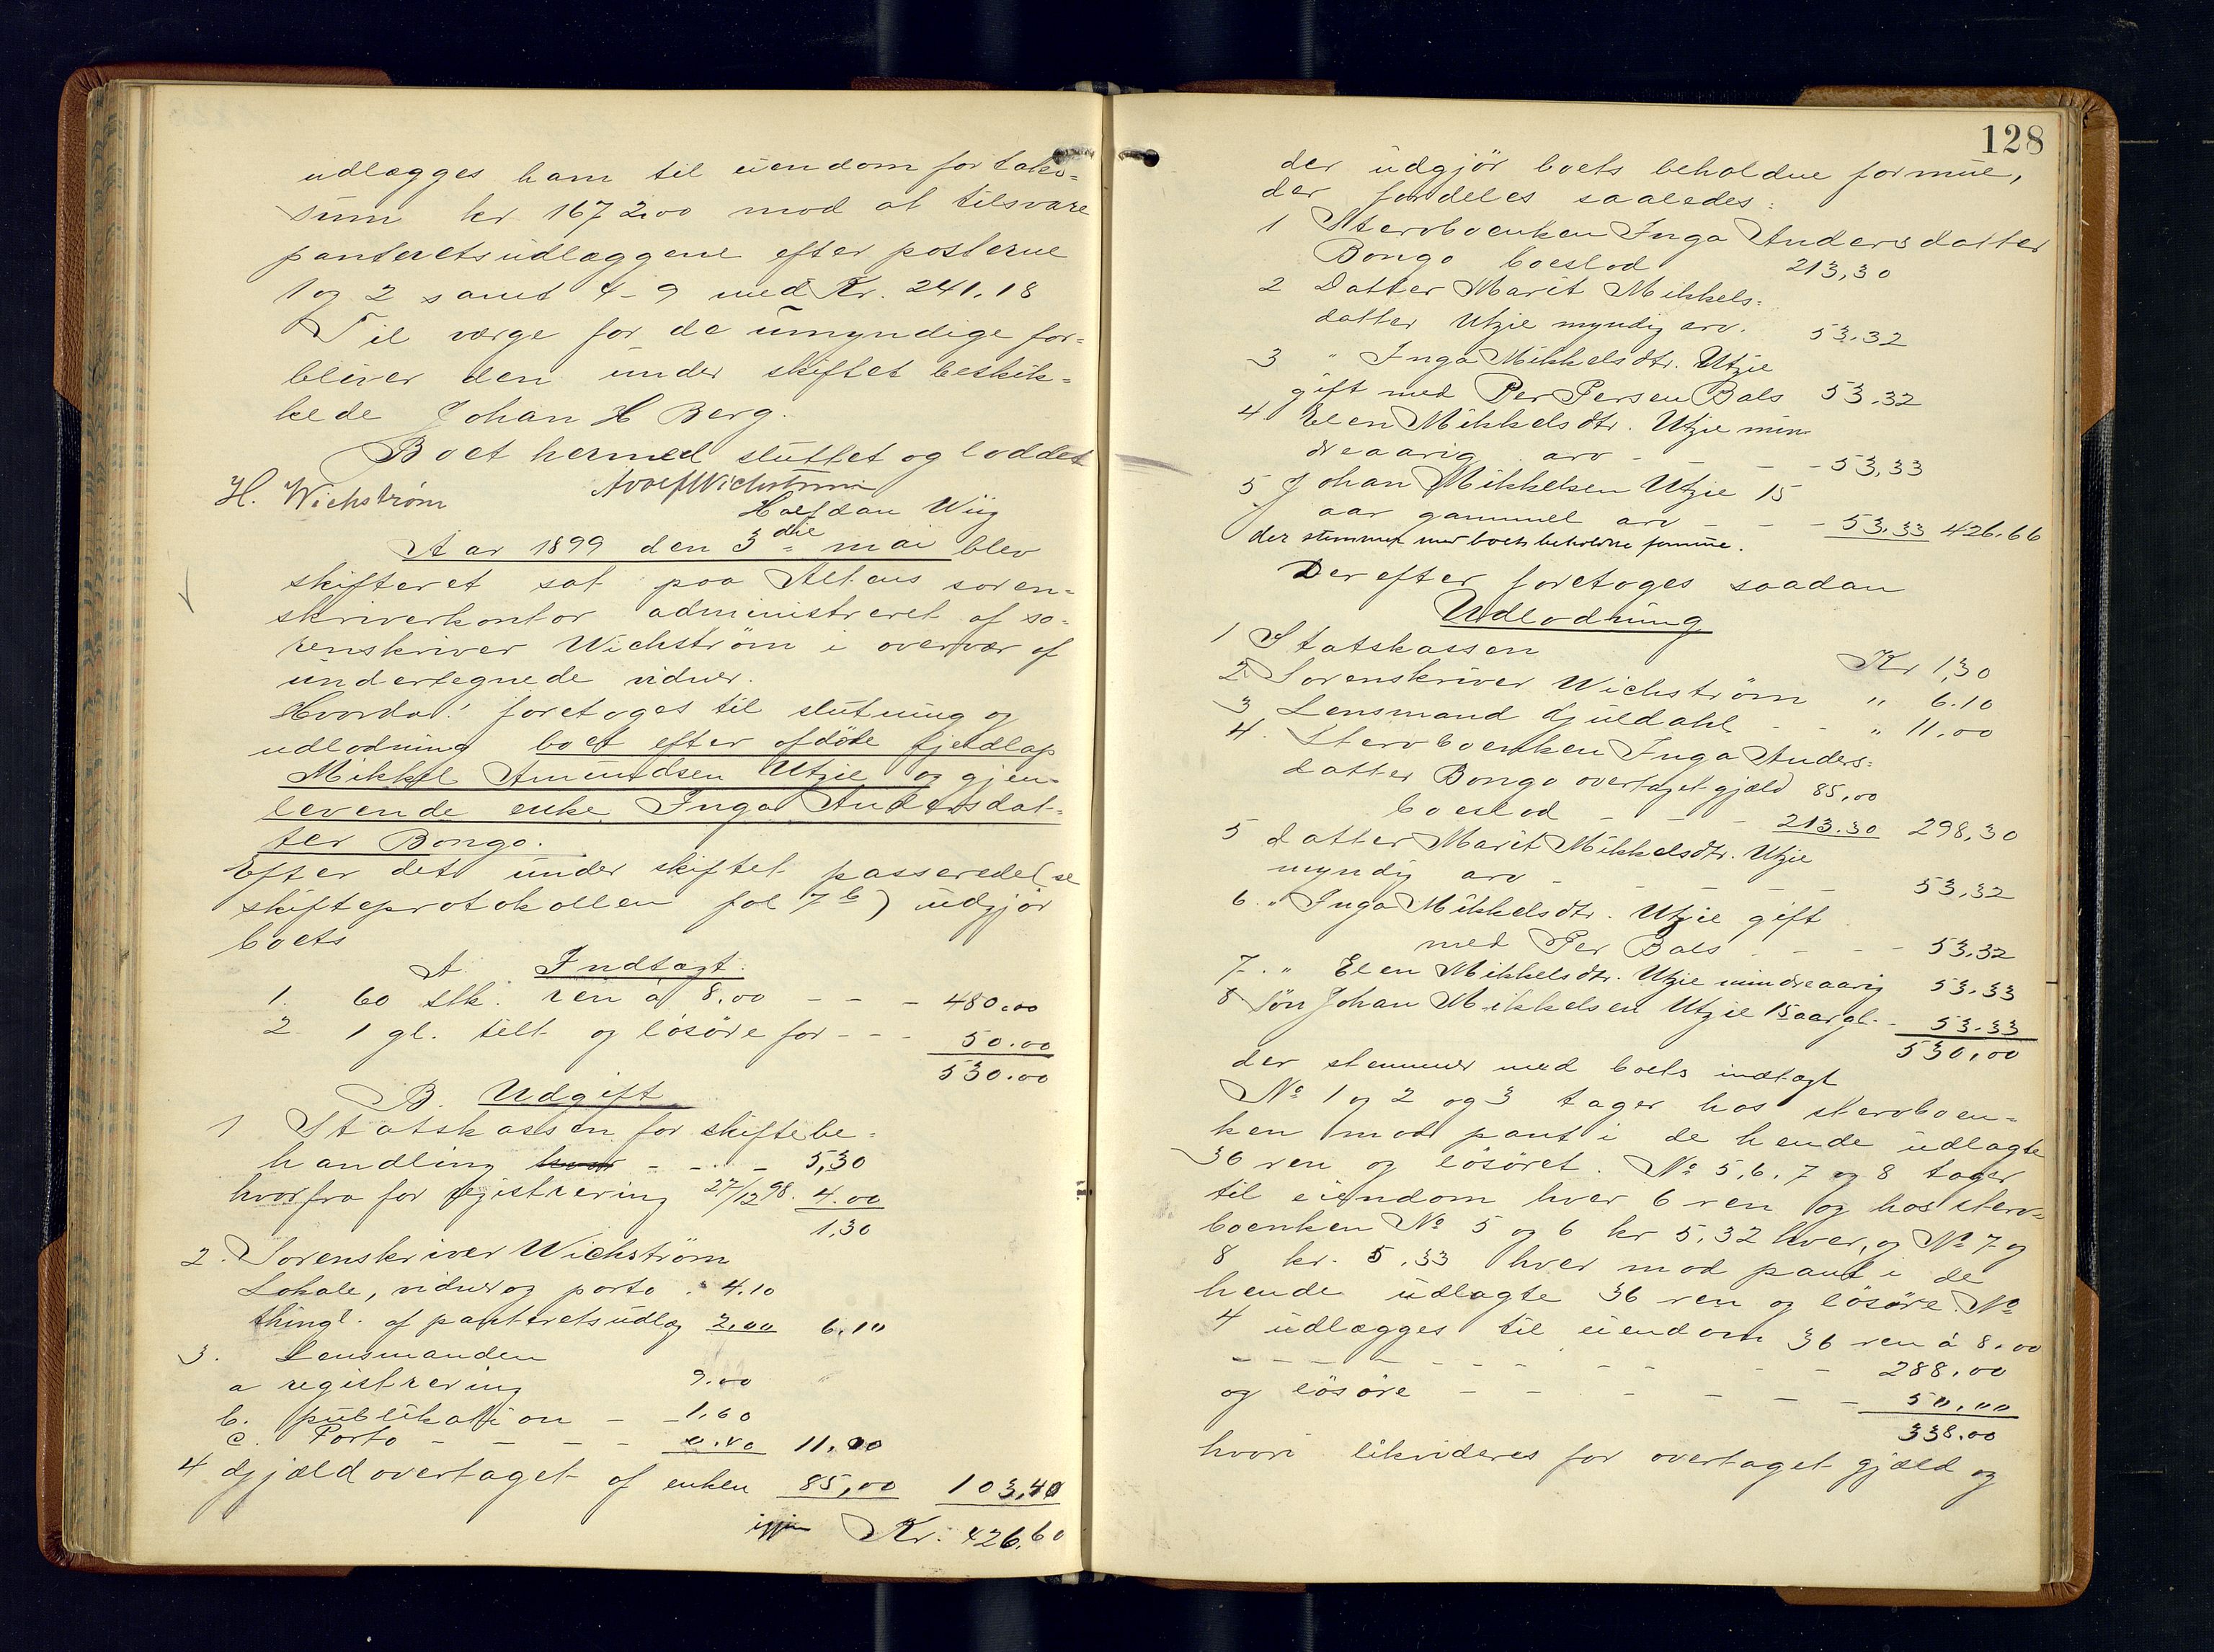 udlægges ham til eiendom for takst=
sum kr. 1672.00 mod at tilsvare
panteretsudlæggene efter posterne
1 og 2 samt 4-9 med Kr. 241.18
Til værge for de umyndige for=
bliver den under skiftet beskik=
kede Johan H Berg.
Boet hermed sluttet og loddet
H. Wichstrøm Adolf Wichstrøm
Halfdan Wiig
Aar 1899 den 3die mai blev
skifteret sat paa Altens soren=
skriverkontor administreret af so=
renskriver Wichström i overvær af
undertegnede vidner.
Hvorda! foretoges til slutning og
udlodning boet efter afdöde fjeldlap
Mikkel Amundsen Utzie og gjen=
levende enke Inga Andersdat=
ter Bongo.
Efter det under skiftet passerede (se
skifteprotokollen fol 7b) udgjør
boets
A. Indtægt.
1. 60 stk. ren á 8.00 - - - 480.00
2 1 gl. telt og lösöre for - - - 50.00
530.00
B. Udgift
1 Statskassen for skiftebe=
handling - - - 5,30
hvorfra for registrering 27/12 98. 4.00
1,30
2. Sorenskriver Wichström
Lokale, vidner og porto . 4.10
thingl. af panteretsudlæg 2,00 6.10
3. Lensmanden
a registrering 9.00
b. publikation - - 1.60
c. Porto - - - - 0.40 11.00
4 Gjæld overtaget af enken 85,00 103,40
igjen Kr. 426.60
128
der udgjör boets beholdne formue,
der fordeles saaledes:
1 Stervboenken Inga Andersdatter
Bongo boeslod 213,30
2 Datter Marit Mikkels=
datter Utzie myndig arv. 53.32
3 " Inga Mikkelsdtr. Utzie
gift med Per Persen Bals 53.32
4 Elen Mikkelsdtr. Utzie min
dreaarig arv - - - - 53,33
5 Johan Mikkelsen Utzie 15
aar gammel arv - - - 53.33 426.66
der stemmer med boets beholdne formue.
Derefter foretoges saadan
Udlodning
1 Statskassen Kr 1,30
2. Sorenskriver Wichström " 6.10
3 Lensmand Gjuldahl - - " 11.00
4. Stervboenken Inga Anders=
datter Bongo overtaget gjæld 85,00
boeslod - - - 213.30 298,30
5 datter Marit Mikkelsdtr. Utzie
myndig arv - - - - - 53,32
6. " Inga Mikkelsdtr. Utzie gift
med Per Bals - - - 53,32
7. " Elen Mikkelsdtr. Utzie mindreaarig 53.33
8 Søn Johan Mikkelsen Utzie 15 aar gl. - 53.33
530,00
der stemmer med boets indtægt
No 1 og 2 og 3 tager hos stervboen=
ken mod pant i de hende udlagte
36 ren og lösöret. No 5, 6, 7 og 8 tager
til eiendom hver 6 ren og hos sterv=
boenken No 5 og 6 kr 5.32 hver, og No 7 og
8 kr. 5.33 hver mod pant i de
hende udlagte 36 ren og lösöre. No
4 udlægges til eiendom 36 ren á 8.00
- - - - - - - - - - 288.00
og lösöre - - - - - - 50,00
338.00
hvori likvideres for overtaget gjæld og